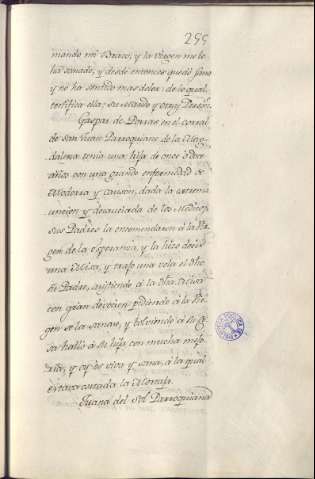 255
mando mi Brazo, y la Virgen me lo
ha sanado, y desde entonces quedó sano
y no ha sentido mas dolor: de lo qual
testifica ella, su Marido y otras Perso.
Gaspar de Porras en el corral
de San Juan Parroquiano de la Mag
dalena tenia una hija de once o doce
años con una grande enfermedad de
Modorra y causon, dada la extrema
uncion y desauciada de los Medicos,
sus Padres la encomendaron á la Vir
gen de la Esperanza, y la hizo decir
una Misa, y trajo una vela el dho
Padre, asistiendo á la dha Misa
con gran devocion pidiendo á la Vir
gen se la sanase, y bolviendo á su ca
sa halló á su hija con mucha mejo
ria, y oy es viva y sana, á la qual
Juana del Sol Parroquiana